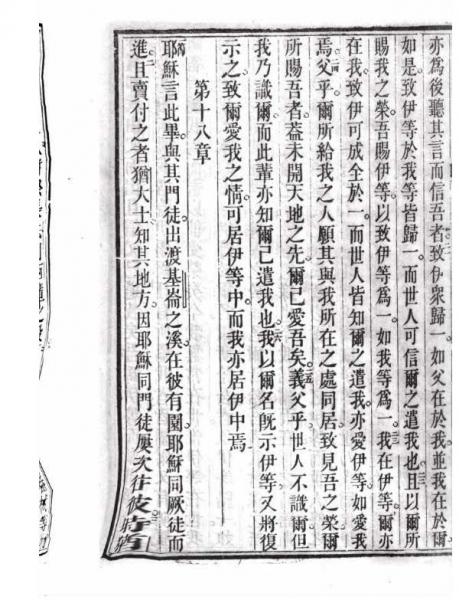 亦為後聽其言而信吾者致伊衆歸一如父在於我並我在於爾
如是致伊等於我等皆歸一而世人可信爾之遣我也且以爾所
賜我之榮吾賜伊等以致伊等為一如我等為一我在伊等爾亦
在我致伊可成全於一而世人皆知爾之遣我亦愛伊等如愛我
焉父乎爾所給我之人願其與我所在之處同居致見吾之榮爾
所賜吾者蓋未開天地之先爾已愛吾矣義父乎世人不識爾但
我乃識爾而此輩亦知爾已遣我也我以爾名既示伊等又將復
示之致爾愛我之情可居伊等中而我亦居伊中焉
第十八章
耶穌言此畢與其門徒出渡基崙之溪在彼有園耶穌同厥徒而
進且賣付之者猶大士知其地方因耶穌同門徒屢次往彼